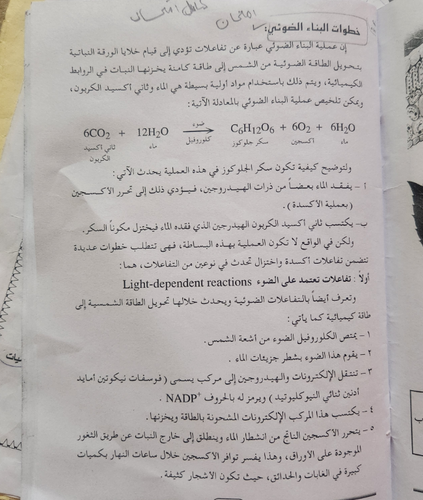 خطوات البناء الضوئي:
إن عملية البناء الضوئي عبارة عن تفاعلات تؤدي إلى قيام خلايا الورقة النباتية
بتحويل الطاقة الضوئية من الشمس إلى طاقة كامنة يخزنها النبات في الروابط
الكيميائية، ويتم ذلك باستخدام مواد أولية بسيطة هي الماء وثاني أكسيد الكربون،
ويمكن تلخيص عملية البناء الضوئي بالمعادلة الآتية:
6CO2 + 12H2O ضوء كلوروفيل C6H12O6 + 6O2 + 6H2O
ثاني اكسيد الكربون ماء سكر جلوكوز اكسجين ماء
ولتوضيح كيفية تكون سكر الجلوكوز في هذه العملية يحدث الآتي:
أ – يفقد الماء بعضاً من ذرات الهيدروجين، فيؤدي ذلك إلى تحرر الأكسجين
( بعملية الأكسدة ).
ب– يكتسب ثاني أكسيد الكربون الهيدرجين الذي فقده الماء فيختزل مكوناً السكر.
ولكن في الواقع لا تكون العملية بهذه البساطة، فهى تتطلب خطوات عديدة
تتضمن تفاعلات أكسدة واختزال تحدث في نوعين من التفاعلات، هما:
أولاً : تفاعلات تعتمد على الضوء Light-dependent reactions
وتعرف أيضاً بالتفاعلات الضوئية ويحدث خلالها تحويل الطاقة الشمسية إلى
طاقة كيميائية كما يأتي:
١ – يمتص الكلوروفيل الضوء من أشعة الشمس.
٢ – يقوم هذا الضوء بشطر جزيئات الماء .
٣ – تنتقل الإلكترونات والهيدروجين إلى مركب يسمى ( فوسفات نيكوتين أمايد
أدنين ثنائي النيوكليوتيد ) ويرمز له بالحروف NADP+ .
٤ – يكتسب هذا المركب الإلكترونات المشحونة بالطاقة ويخزنها.
٥ – يتحرر الأكسجين الناتج من انشطار الماء وينطلق إلى خارج النبات عن طريق الثغور
الموجودة على الأوراق، وهذا يفسر توافر الأكسجين خلال ساعات النهار بكميات
كبيرة في الغابات والحدائق، حيث تكون الأشجار كثيفة.